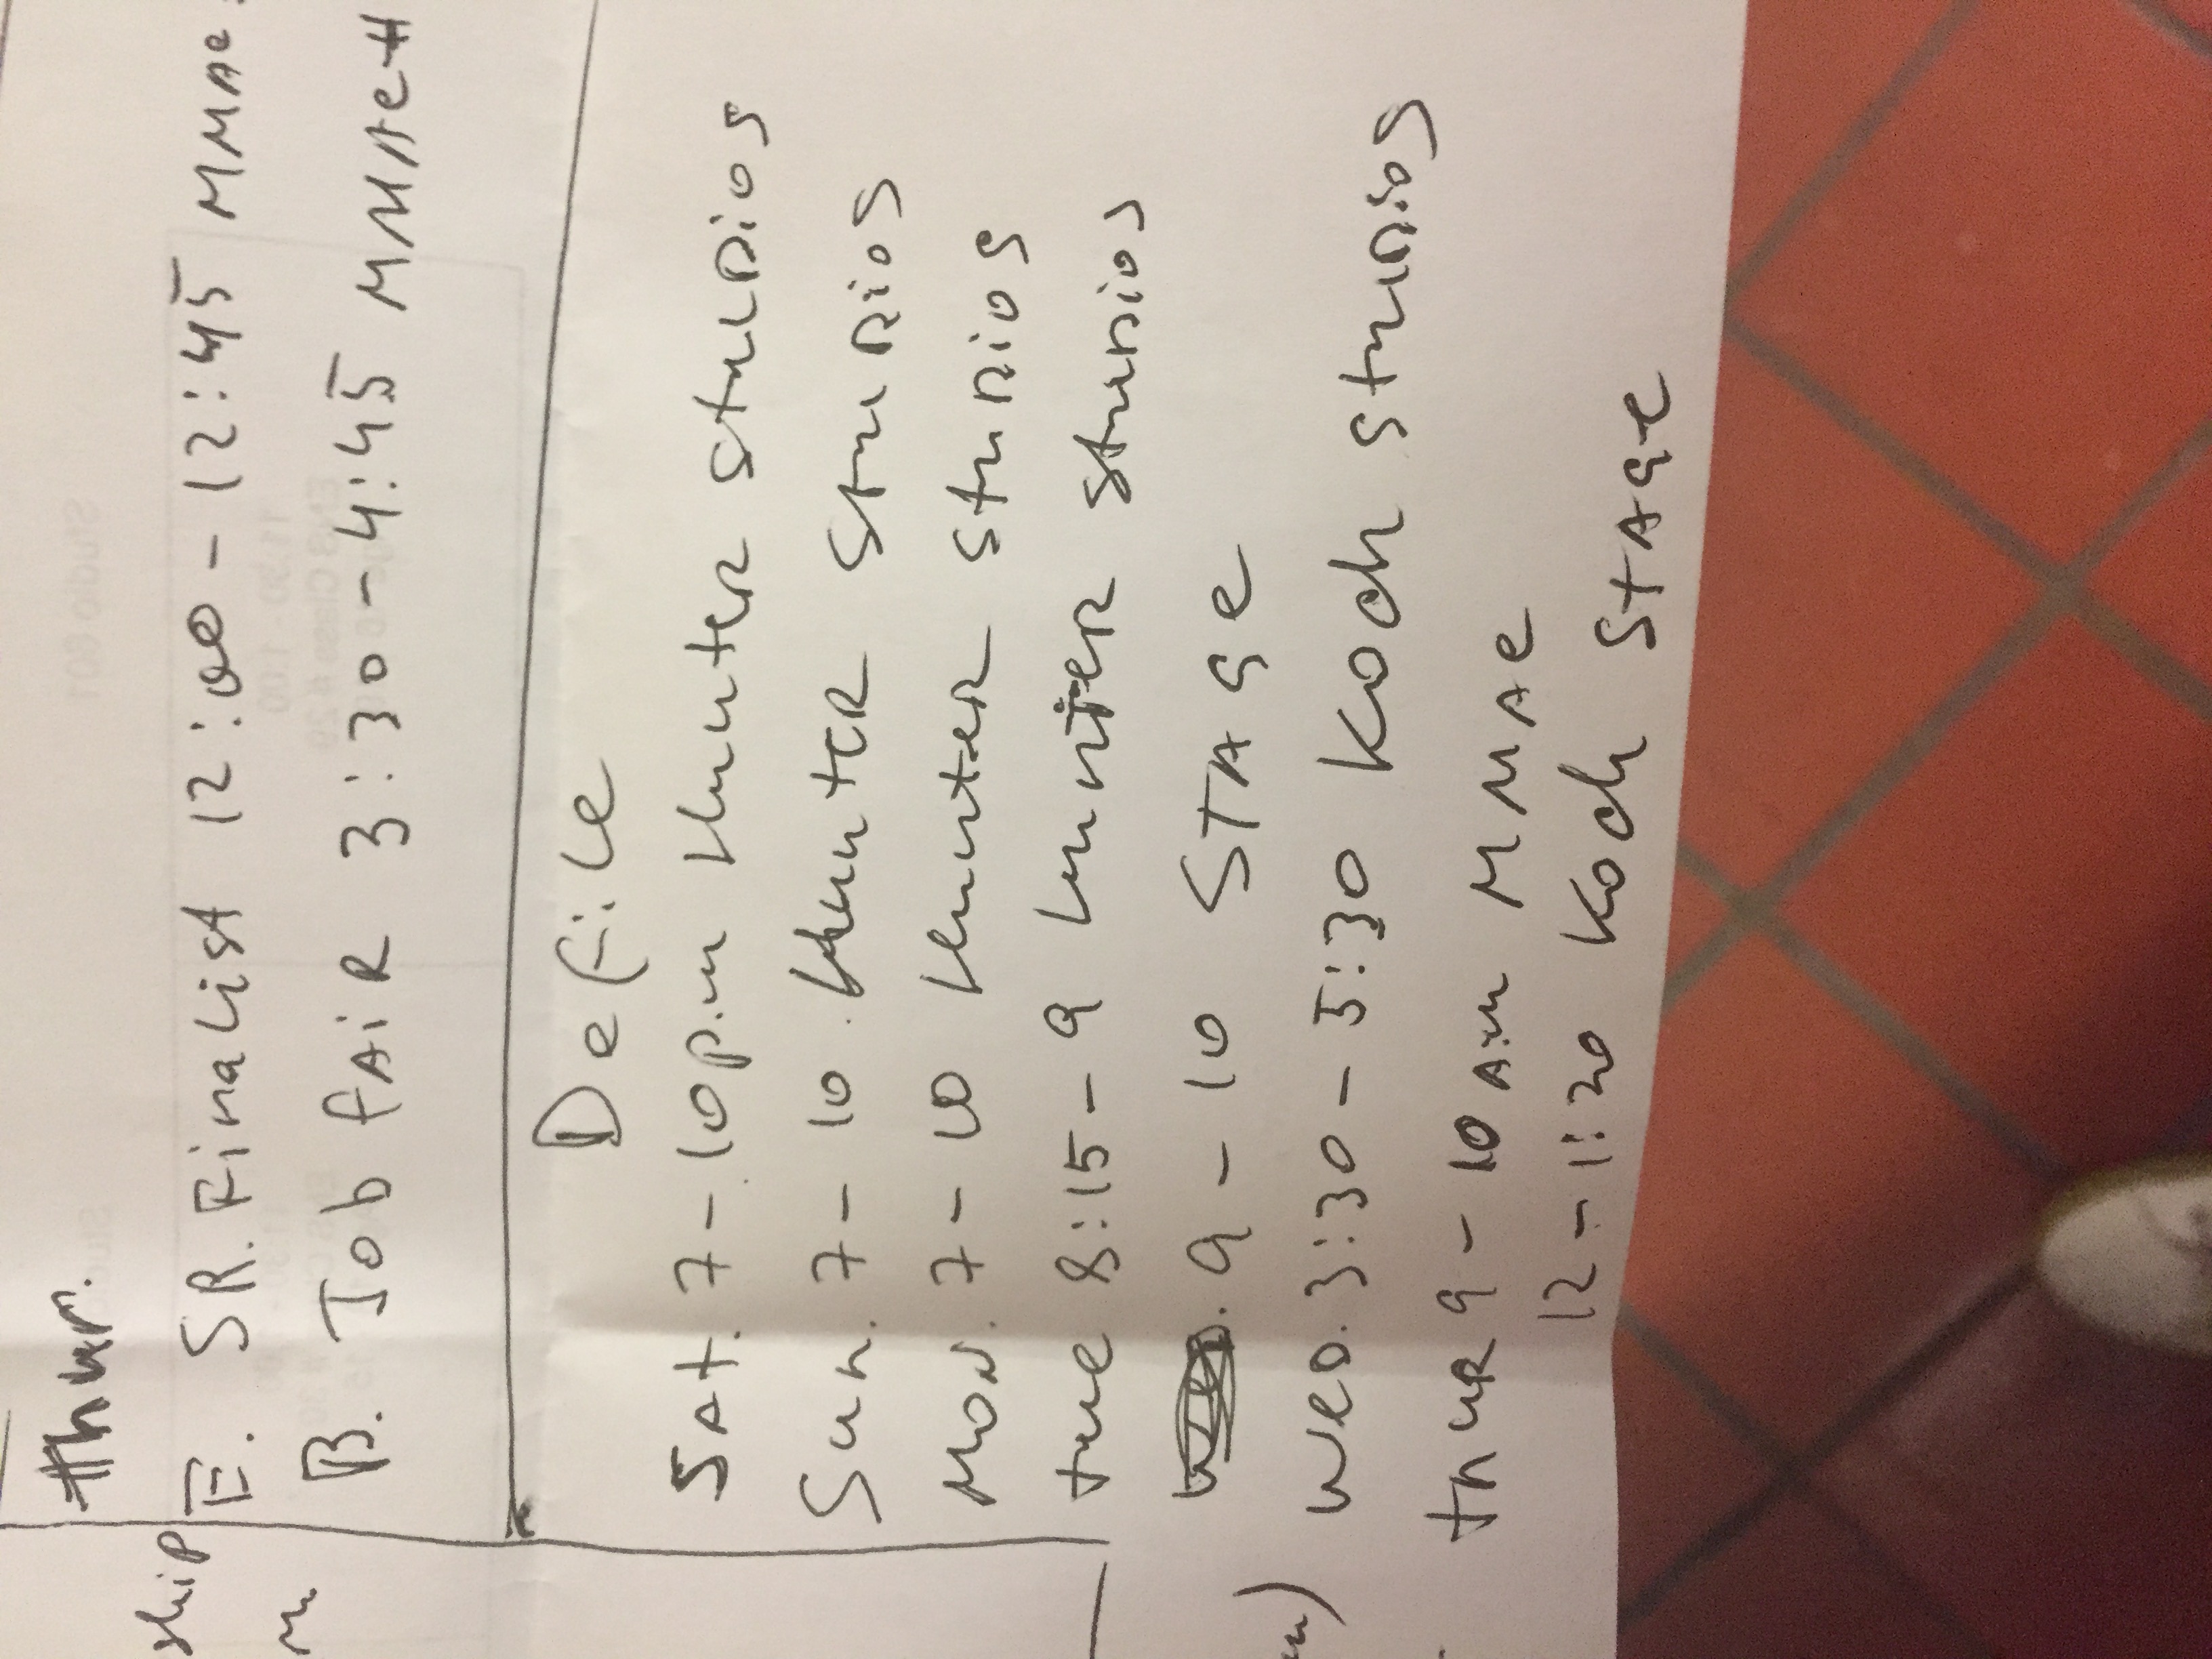 thur.
ship E. SR. Finalist 12:00 - 12:45 MMAe
m B. Job fAiR 3:30 - 4:45 MMAeH
Defile
SAt. 7 - 10p.m Hunter studios
Sun. 7 - 10 Hunter studios
Mon. 7 - 10 Hunter studios
tue 8:15 - 9 Hunter studios
9 - 10 STAge
Wed. 3:30 - 5:30 Koch studios
thuR 9 - 10 Am MMAe
12 - 1:20 Koch STAge